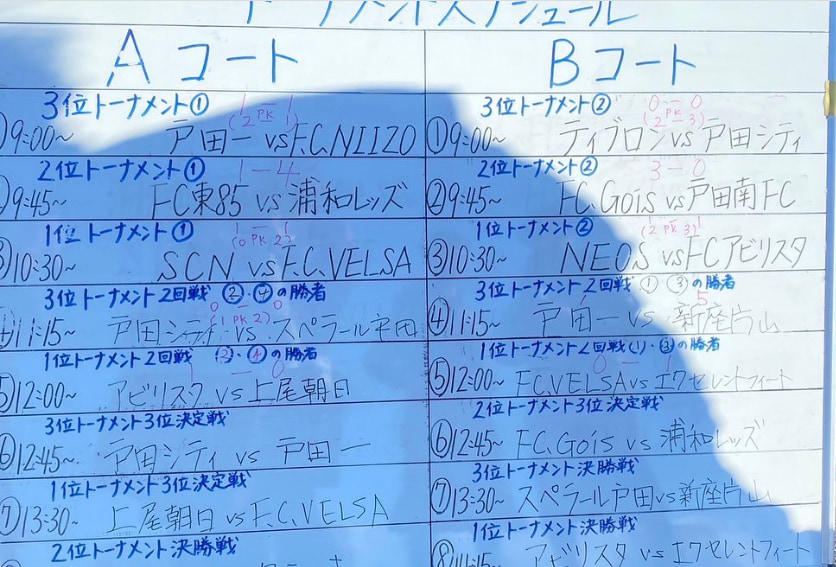 トーナメントスケジュール
Aコート
3位トーナメント①
1 - 1
(2 PK 1)
9:00~ 戸田一 vs F.C.NIIZO
2位トーナメント①
1-4
9:45~ FC東85 vs 浦和レッズ
1位トーナメント①
1 - 1
(0 PK 2)
10:30~ SCN vs F.C.VELSA
3位トーナメント2回戦 ②・④の勝者
0 - 0
(1 PK 2)
11:15~ 戸田シティ vs スペラール戸田
1位トーナメント2回戦 ②・④の勝者
1 - 0
⑤12:00~ アビリスタ vs 上尾朝日
3位トーナメント3位決定戦
⑥12:45~ 戸田シティ vs 戸田一
1位トーナメント3位決定戦
⑦13:30~ 上尾朝日 vs F.C.VELSA
2位トーナメント決勝戦
Bコート
3位トーナメント②
0-0
(2 PK 3)
①9:00~ ティブロン vs 戸田シティ
2位トーナメント②
3-0
②9:45~ FC.Gois vs 戸田南FC
1位トーナメント②
1 - 1
(2 PK 3)
③10:30~ NEOS vs FCアビリスタ
3位トーナメント2回戦 ①③の勝者
1 - 5
④11:15~ 戸田一 vs 新座片山
1位トーナメント2回戦(1)・③の勝者
0 - 1
⑤12:00~ F.C.VELSA vs エクセレントフィート
2位トーナメント3位決定戦
⑥12:45~ FC.Gois vs 浦和レッズ
3位トーナメント決勝戦
⑦13:30~ スペラール戸田 vs 新座片山
1位トーナメント決勝戦
⑧14:15~ アビリスタ vs エクセレントフィート